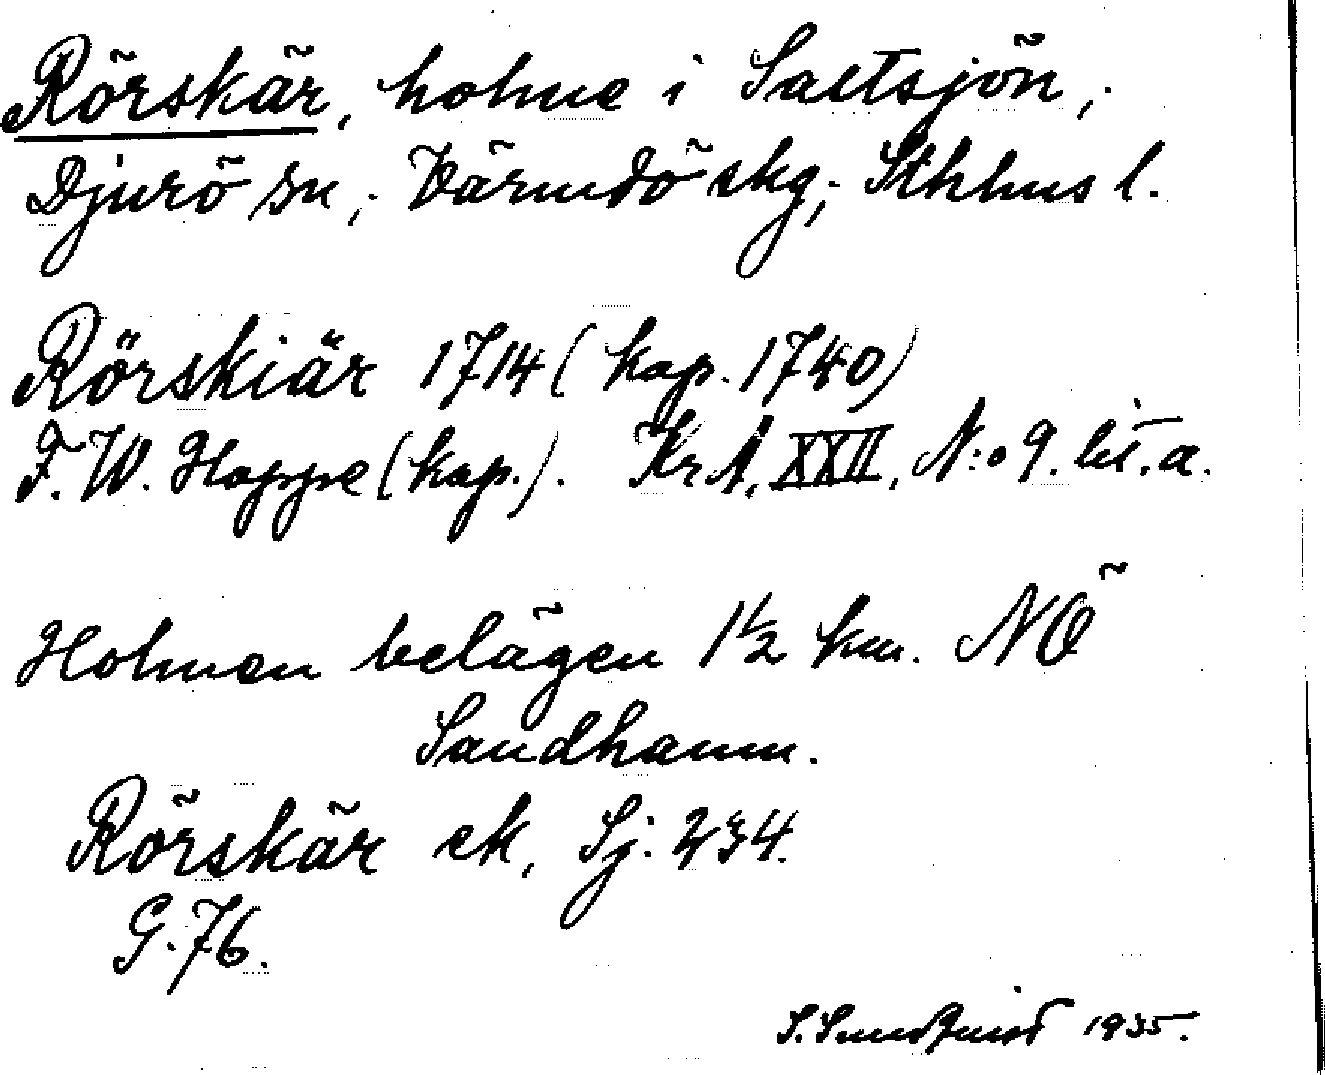 Rörskär, holme i Saltsjön,
Djurö sn, Värmdö skg, Sthlms l.
Rörskiär 1714 (kop. 1740)
F. W. Hoppe (kop.). Kr A, XXII, N:o 9. lit. a.
Holmen belägen 1 1/2 km. NÖ
Sandhamn.
Rörskär ek, Sj. 234.
G. 76.
1935.